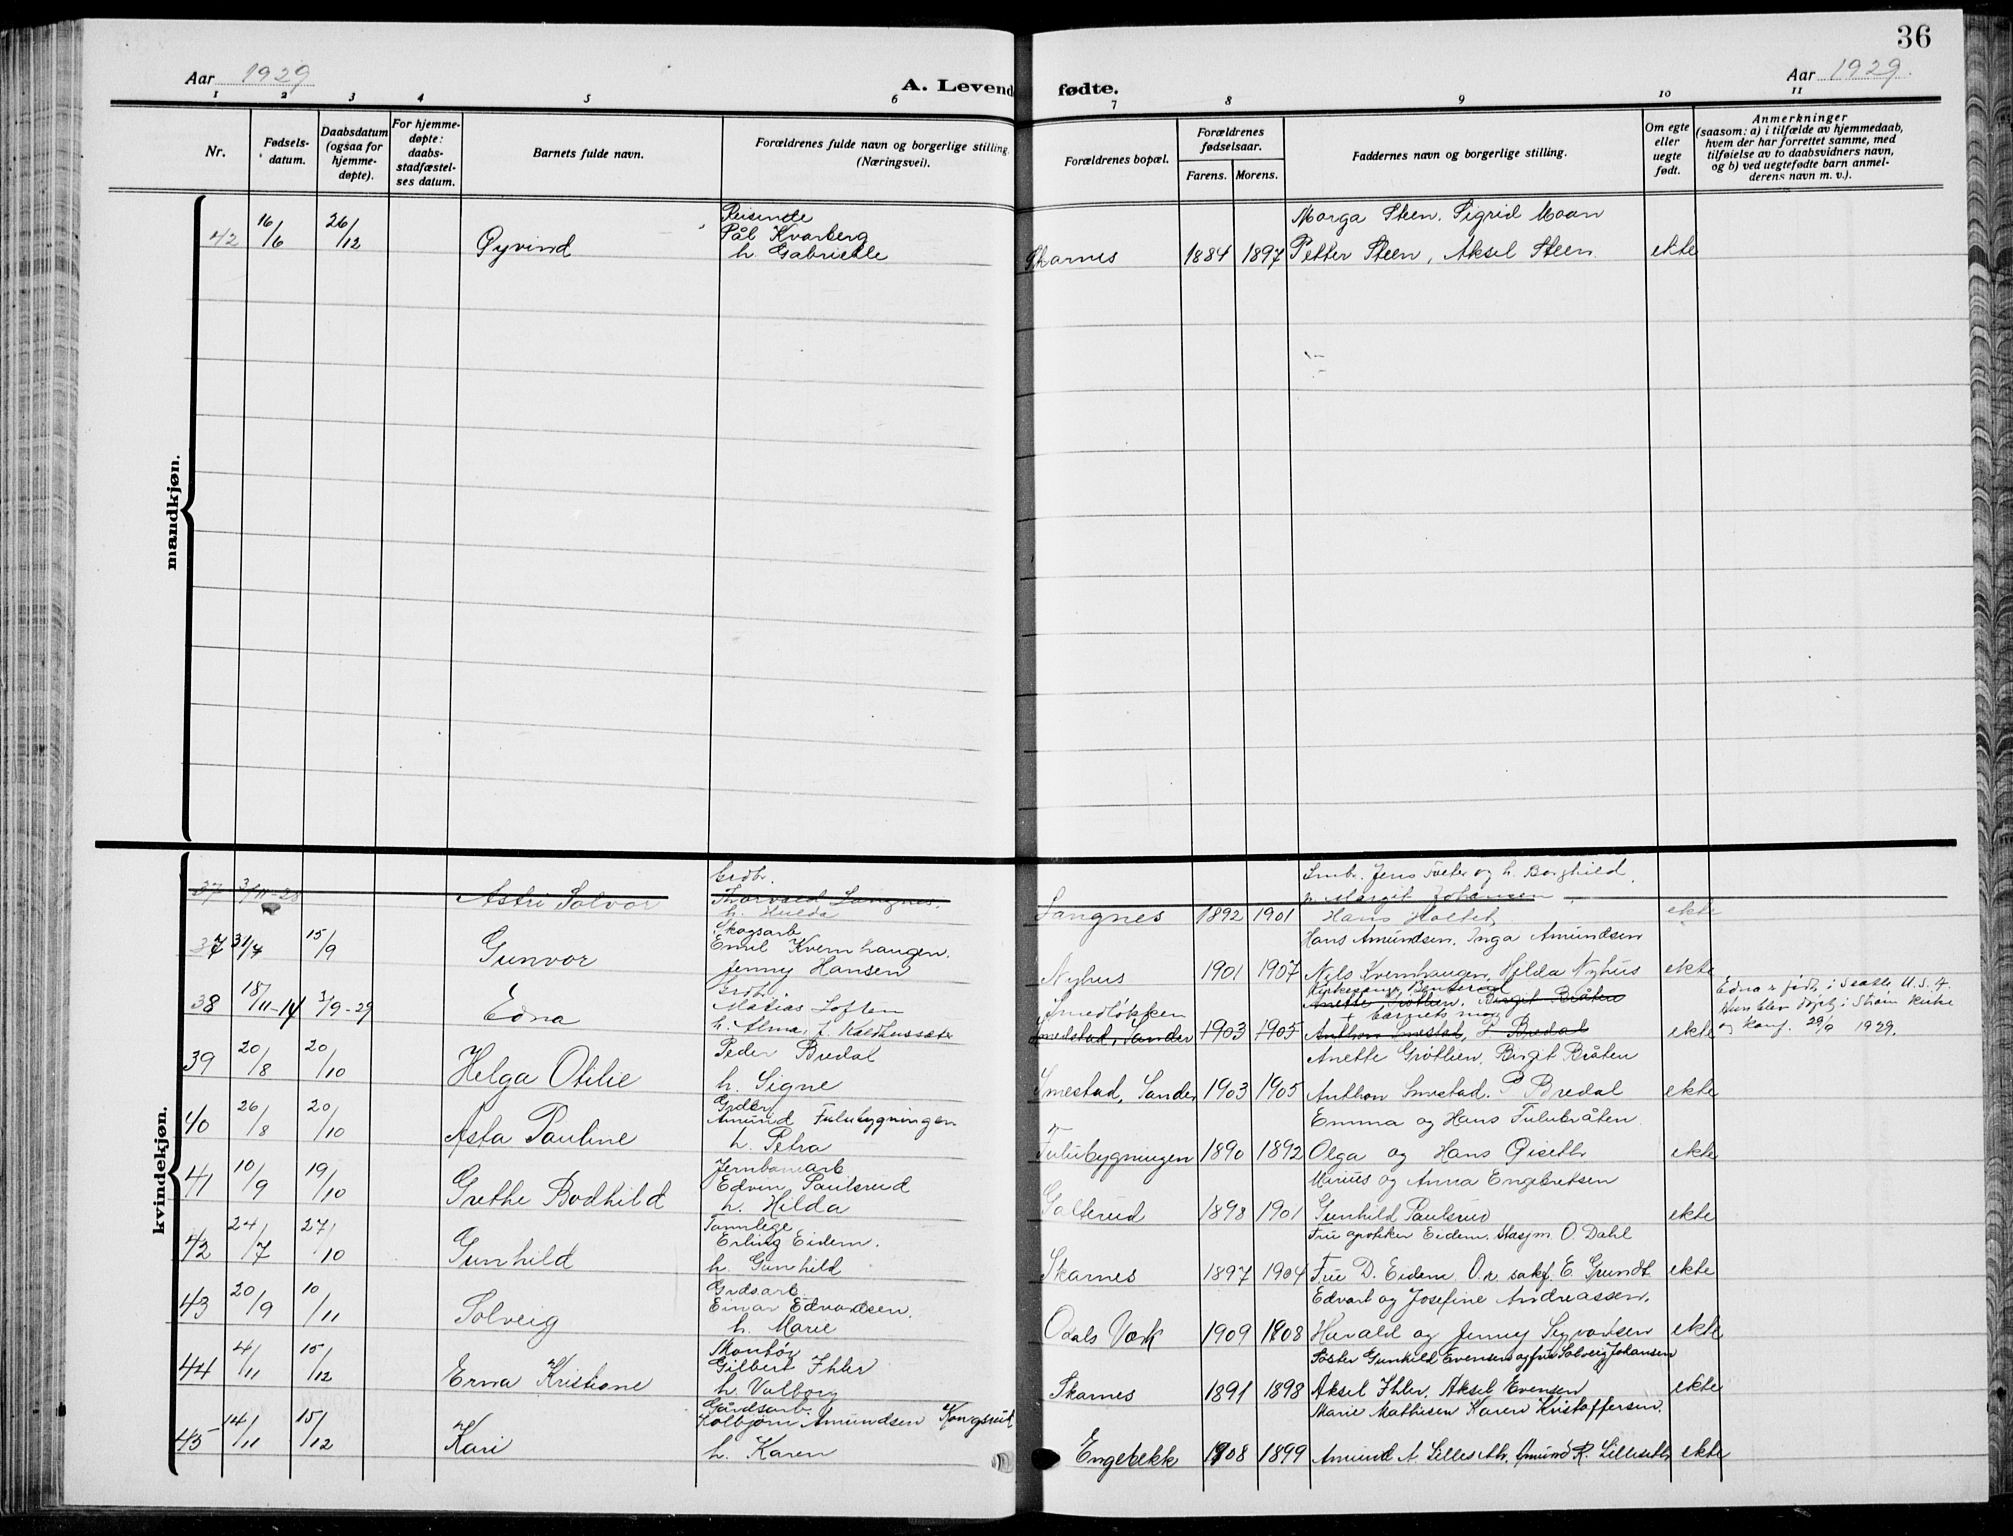 36
Aar 1929
A. Levende fødte.
Aar 1929.
1 2 3 4 5 6 7 8 9 10 11
Nr.
Fødsels-
datum.
Daabsdatum
(ogsaa for
hjemme-
døpte).
For hjemme-
døpte:
daabs-
stadfæstel-
ses datum.
Barnets fulde navn.
Forældrenes fulde navn og borgerlige stilling
(Næringsvei).
Forældrenes bopæl.
Forældrenes
fødselsaar.
Farens. Morens.
Faddernes navn og borgerlige stilling.
Om egte
eller
uegte
født.
Anmerkninger
(saasom: a) i tilfælde av hjemmedaab,
hvem der har forrettet samme, med
tilføielse av to daabsvidners navn,
og b) ved uegtefødte barn anmel-
derens navn m. v.).
mandkjøn.
Reisende Marga Steen, Sigrid Moan
42 16/6 26/12 Øyvind Pål Kvarberg
h. Gabrielle Skarnes 1884 1897 Petter Steen, Aksel Steen ekte
kvindekjøn.
Grdbr. Smbr. Jens Tveter og h. Borghild
37 3/11-28 Astri Solvor Thorvald Langnes, p. Margit Johansen
h. Hulda Langnes 1892 1901 Hans Holtet ekte
Skogsarb Hans Amundsen, Inga Amundsen
37 31/7 15/9 Gunvor Emil Kvernhaugen,
Jenny Hansen Nyhus 1901 1907 Nils Kvernhaugen, Hilda Nyhus ekte
Grdbr.
38 18/11-14 1/9-29 Edna Matias Loften Smedløkken Anette Grøtlien, Birgit Bråten
Edna er født i Seattle U.S.A.
Hun blev døpt i Strøm kirke
og konf. 29/9 1929.
h. Alma, f. Smedstad, Sander 1903 1905 Anthon Smestad, P. Bredal ekte
39 20/8 20/10 Helga Otilie Peder Bredal Anette Grøtlien, Birgit Bråten
h. Signe Smestad, Sander 1903 1905 Anthon Smestad, P Bredal ekte
Grdbr. Emma og Hans Fulubråten
40 26/8 20/10 Asta Pauline Amund Fulubygningen
h. Petra Fulubygningen 1890 1892 Olga og Hans ekte
Jernbanearb Minius og Anna Engebretsen
41 10/9 19/10 Grethe Bodhild Edvin Paulsrud
h. Hilda Galterud 1898 1901 Gunhild Paulsrud ekte
Tannlege Frue apoteker Eidem, Stasjm O. Dahl
42 24/7 27/10 Gunhild Erling Eidem,
h. Gunhild Skarnes 1897 1904 Frue D. Eidem, O.r. sakf. E. Grundt ekte
Grdsarb. Edvart og Josefine Andreassen,
43 20/9 10/11 Solveig Einar Edvardsen,
h. Marie Odals Verk 1909 1908 Harald og Jenny Syvertsen ekte
Montør Søster Gunhild Evensen og frue Solveig Johansen
44 4/11 15/12 Erna Kristiane Gilbert Ihler
h. Valborg Skarnes 1891 1898 Aksel Ihler, Aksel Evensen ekte
Gårdsarb. Marie Mathisen Karen Kristoffersen,
45 14/11 15/12 Kari Kolbjørn Amundsen Kongsrud
h. Karen Engebekk 1908 1899 Amund A. Lilleseth, Amund R. Lilleseth ekte